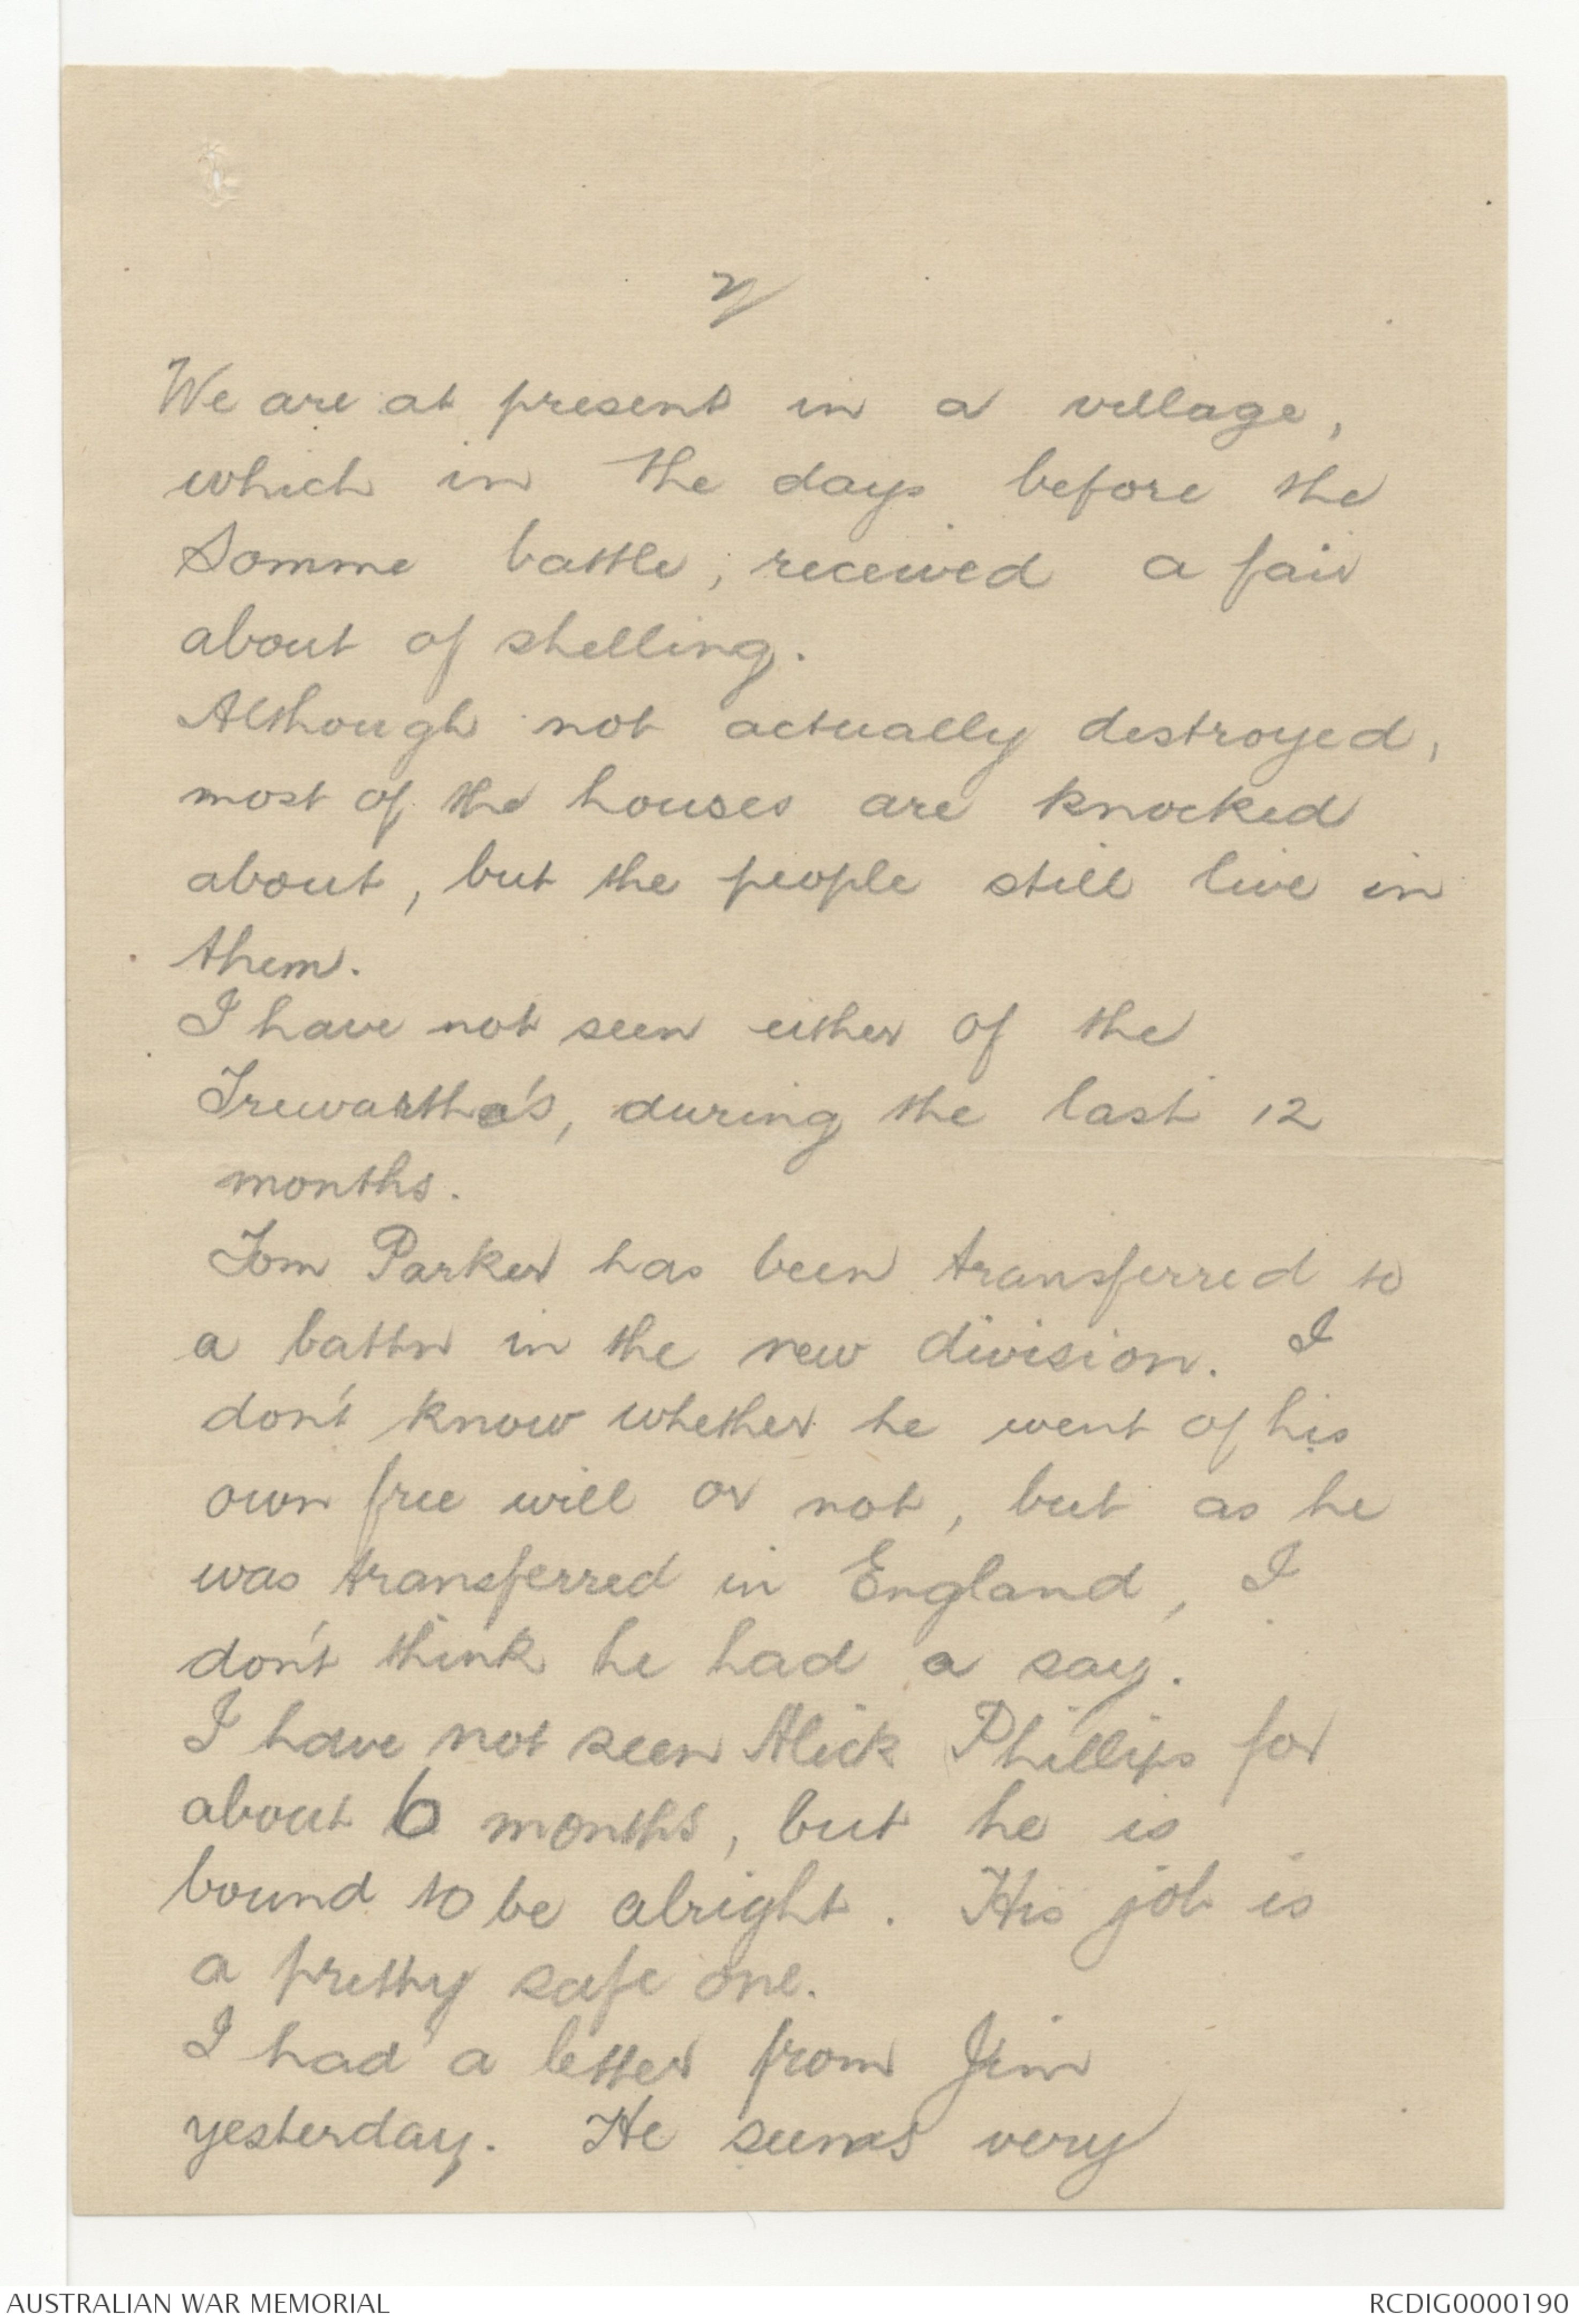 2/
We are at present in a village,
which in the days before the
Somme battle, received a fair
about of shelling.
Although not actually destroyed,
most of the houses are knocked
about, but the people still live in
them.
I have not seen either of the
Trewartha's, during the last 12
months.
Tom Parker has been transferred to
a battn in the new division. I
don't know whether he went of his
own free will or not, but as he
was transferred in England, I
don't think he had a say.
I have not seen Alick Phillips for
about 6 months, but he is
bound to be alright. His job is
a pretty safe one.
I had a letter from Jim
yesterday. He seems very
AUSTRALIAN WAR MEMORIAL
RCDIG0000190